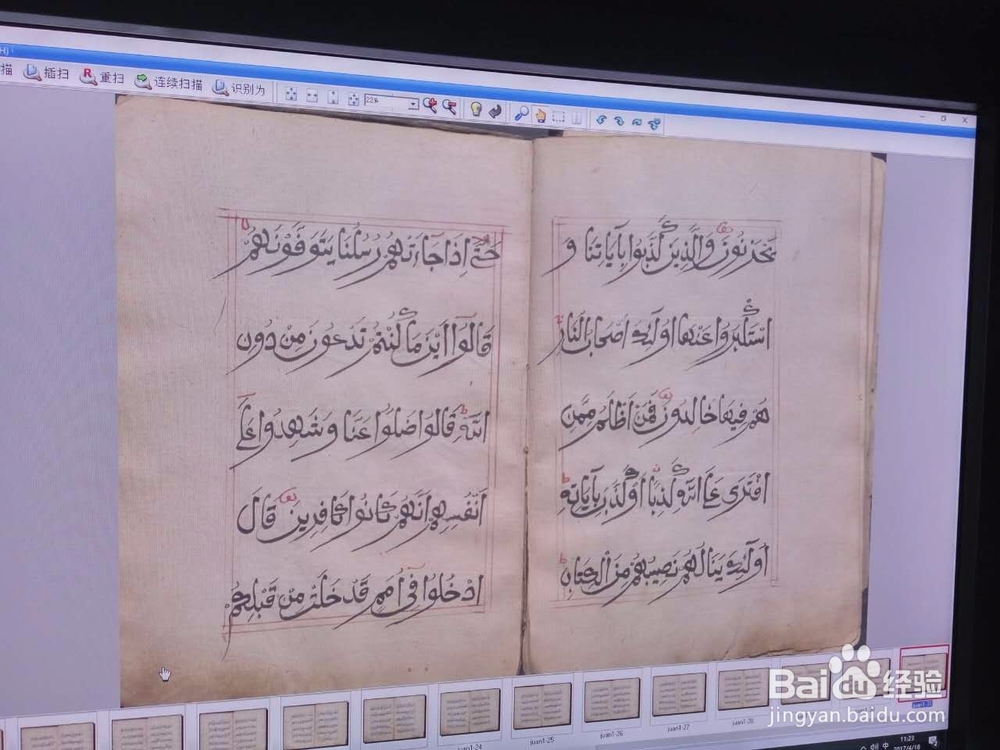 插扫 重扫 连续扫描 识别为
22%
يَحْزَنُونَ وَالَّذِينَ كَذَّبُوا بِآيَاتِنَا وَ
اسْتَكْبَرُوا عَنْهَا أُولَئِكَ أَصْحَابُ النَّارِ
هُمْ فِيهَا خَالِدُونَ فَمَنْ أَظْلَمُ مِمَّنِ
افْتَرَى عَلَى اللَّهِ كَذِبًا أَوْ كَذَّبَ بِآيَاتِهِ
أُولَئِكَ يَنَالُهُمْ نَصِيبُهُمْ مِنَ الْكِتَابِ
حَتَّى إِذَا جَاءَتْهُمْ رُسُلُنَا يَتَوَفَّوْنَهُمْ
قَالُوا أَيْنَ مَا كُنْتُمْ تَدْعُونَ مِنْ دُونِ
اللَّهِ قَالُوا ضَلُّوا عَنَّا وَشَهِدُوا عَلَى
أَنْفُسِهِمْ أَنَّهُمْ كَانُوا كَافِرِينَ قَالَ
ادْخُلُوا فِي أُمَمٍ قَدْ خَلَتْ مِنْ قَبْلِكُمْ
Baidu 经验
jingyan.baidu.com
11:23
2017/4/18